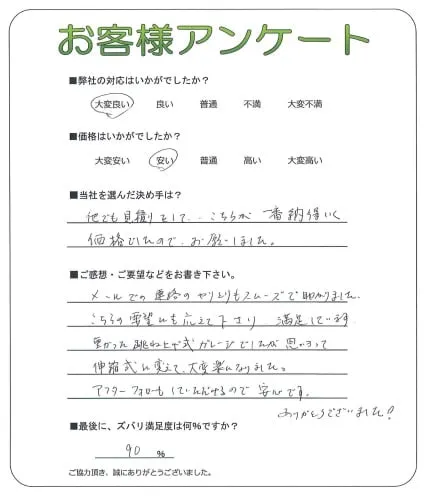 お客様アンケート
■弊社の対応はいかがでしたか？
大変良い 良い 普通 不満 大変不満
■価格はいかがでしたか？
大変安い 安い 普通 高い 大変高い
■当社を選んだ決め手は？
他でも見積りをして、こちらが一番納得いく
価格でしたので、お願いしました。
■ご感想・ご要望などをお書き下さい。
メールでの連絡のやりとりもスムーズで助かりました。
こちらの要望にも応えて下さり 満足しています
重かった跳ね上げ式ガレージでしたが思いきって
伸縮式に変えて、大変楽になりました。
アフターフォローもしていただけるので安心です。
ありがとうございました！
■最後に、ズバリ満足度は何％ですか？
90 ％
ご協力頂き、誠にありがとうございました。